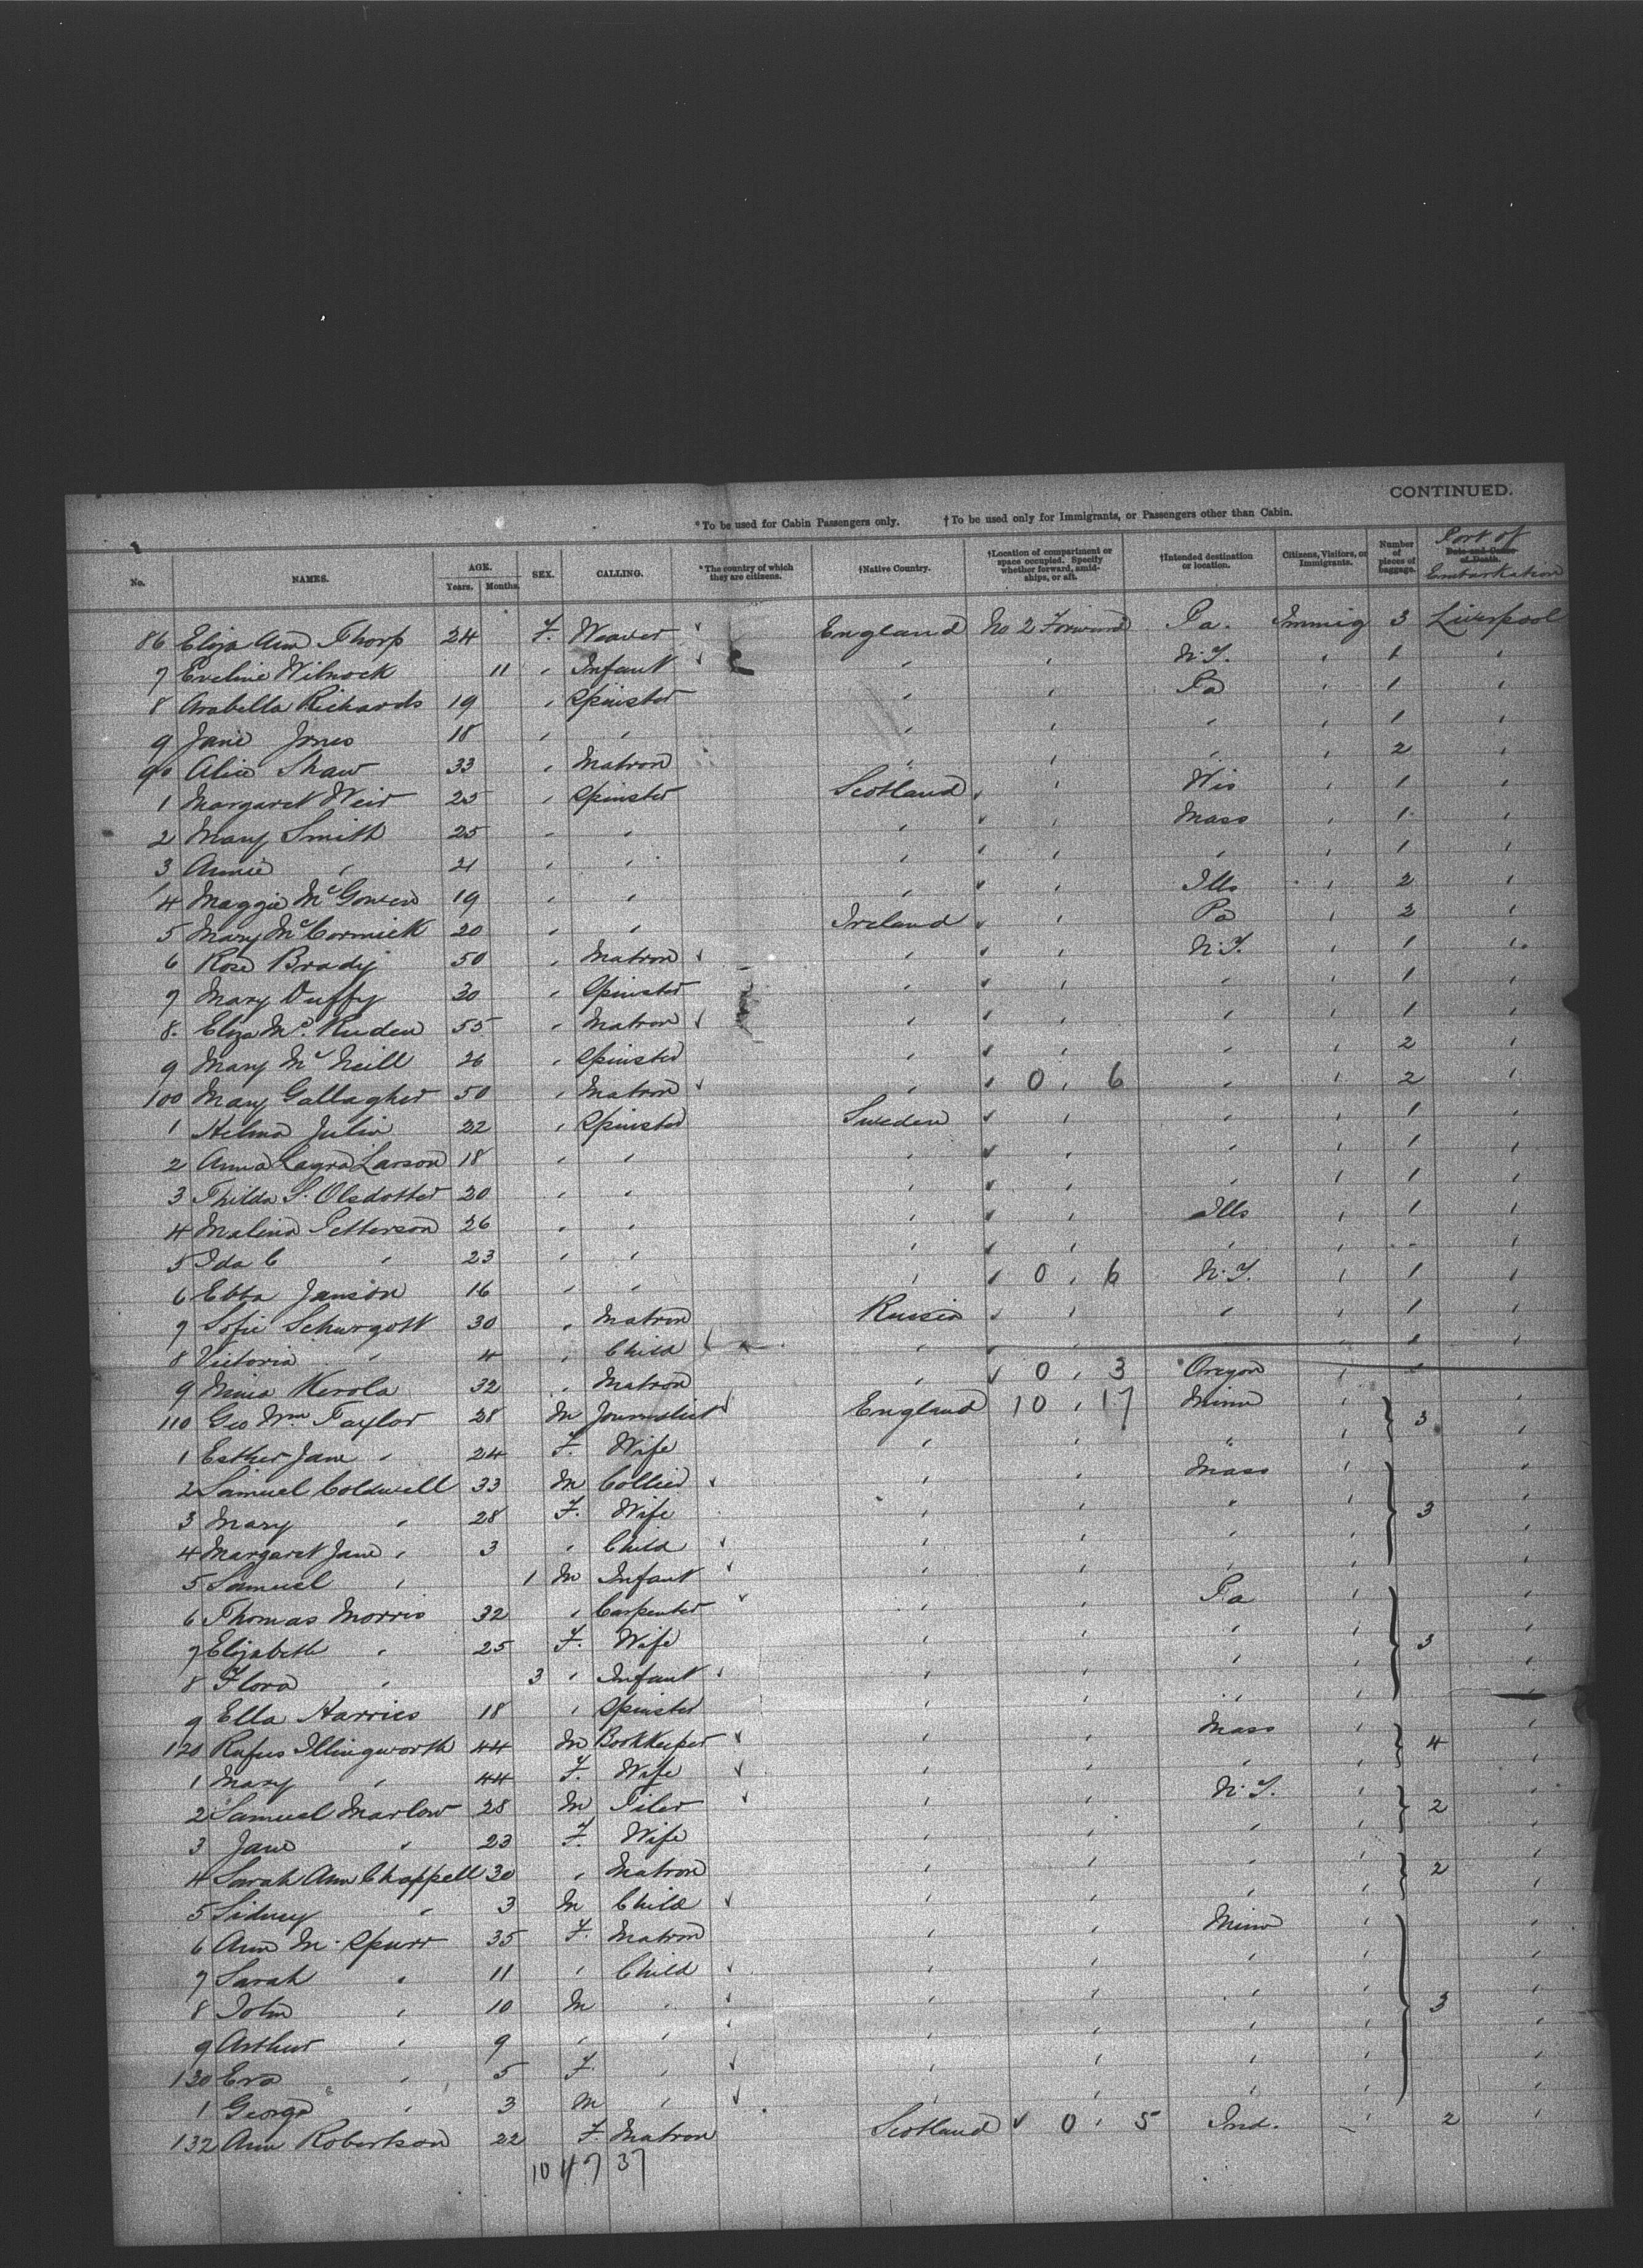 CONTINUED.
*To be used for Cabin Passengers only. †To be used only for Immigrants, or Passengers other than Cabin.
No. NAMES. AGE. Years. Months. SEX. CALLING. *The country of which they are citizens. †Native Country. †Location of compartment or space occupied. Specify whether forward, amidships, or aft. †Intended destination or location. Citizens, Visitors, or Immigrants. Number of pieces of baggage. Date and Cause of Death. Port of Embarkation
86 Eliza Ann Thorp 24 F. Weaver ✓ England No 2 Forward Pa. Immig 3 Liverpool
7 Eveline 11 " Infant ✓ " " N.Y. " 1 "
8 Arabella Richards 19 " Spinster " " Pa " 1 "
9 Jane Jones 18 " " " " " " 1 "
90 Alice Shaw 33 " Matron " " " " 2 "
1 Margaret Weir 25 " Spinster Scotland ✓ " Wis " 1 "
2 Mary Smith 25 " " " ✓ " Mass " 1 "
3 Annie " 21 " " " ✓ " " " 1 "
4 Maggie McGowen 19 " " " ✓ " Ills " 2 "
5 Mary McCormick 20 " " Ireland ✓ " Pa " 2 "
6 Rose Brady 50 " Matron ✓ " ✓ " N.Y. " 1 "
7 Mary Duffy 30 " Spinster " ✓ " " " 1 "
8 Eliza Mc 55 " Matron ✓ " ✓ " " " 1 "
9 Mary McNeill 26 " Spinster " ✓ " " " 2 "
100 Mary Gallagher 50 " Matron ✓ " ✓ 0 " 6 " " 2 "
1 Helma Julin 22 " Spinster Sweden ✓ " " " 1 "
2 Anna Larson 18 " " ✓ " " " 1 "
3 Thilda S. Olsdotter 20 " " ✓ " " " 1 "
4 Malina Petterson 26 " " " ✓ " Ills " 1 "
5 Ida C " 23 " " ✓ " " " "
6 Ebba Janson 16 " " " ✓ 0 " 6 N.Y. " 1 "
7 Sofie Schurgott 30 " Matron Russia ✓ " " " 1 "
8 Victoria " 4 " Child ✓ " ✓ " " " "
9 Kerola 32 " Matron " ✓ 0 " 3 Oregon "
110 Geo Wm Taylor 28 M Journalist ✓ England 10 " 17 Minn " 3 "
1 Esther Jane " 24 F. Wife " " " " "
2 Samuel Coldwell 33 M Collier ✓ " " Mass " "
3 Mary " 28 F. Wife " " " " 3 "
4 Margaret Jane " 3 " Child ✓ " " " " "
5 Samuel " 1 M Infant ✓ " " " " "
6 Thomas Morris 32 " Carpenter ✓ " " Pa " "
7 Elizabeth " 25 F. Wife " " " " 3 "
8 Flora " 3 " Infant ✓ " " " " "
9 Ella Harries 18 " Spinster " " " " "
120 Rufus Illingworth 44 M Bookkeeper ✓ " " Mass " 4 "
1 Mary " 44 F. Wife ✓ " " " " "
2 Samuel Marlow 28 M Tiler ✓ " " N.Y. " 2 "
3 Jane " 23 F. Wife " " " " "
4 Sarah Ann Chappell 30 " Matron " " " " 2 "
5 Sidney " 3 M Child ✓ " " " " "
6 Ann M. Spurr 35 F. Matron " " Minn " "
7 Sarah " 11 " Child ✓ " " " " "
8 John " 10 M " ✓ " " " " 3 "
9 Arthur " 9 " " ✓ " " " " "
130 Eva " 5 F. " ✓ " " " " "
1 George " 3 M " ✓ " " " " "
132 Ann Robertson 22 F. Matron Scotland ✓ 0 " 5 Ind. " 2 "
10 47 37